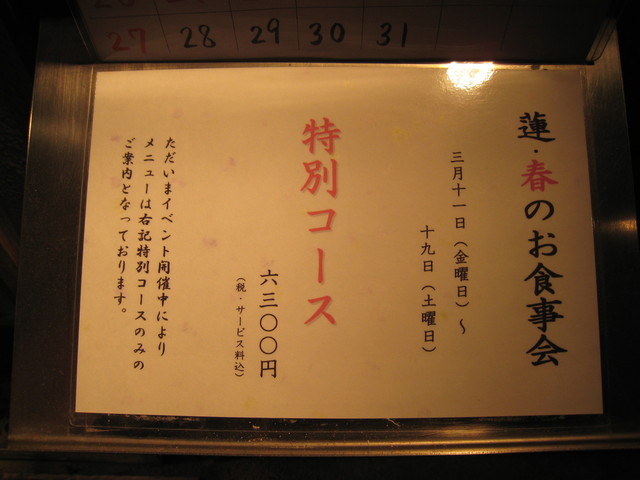 27 28 29 30 31
蓮・春のお食事会
三月十一日（金曜日）〜
十九日（土曜日）
特別コース
六三〇〇円
（税・サービス料込）
ただいまイベント開催中により
メニューは右記特別コースのみの
ご案内となっております。